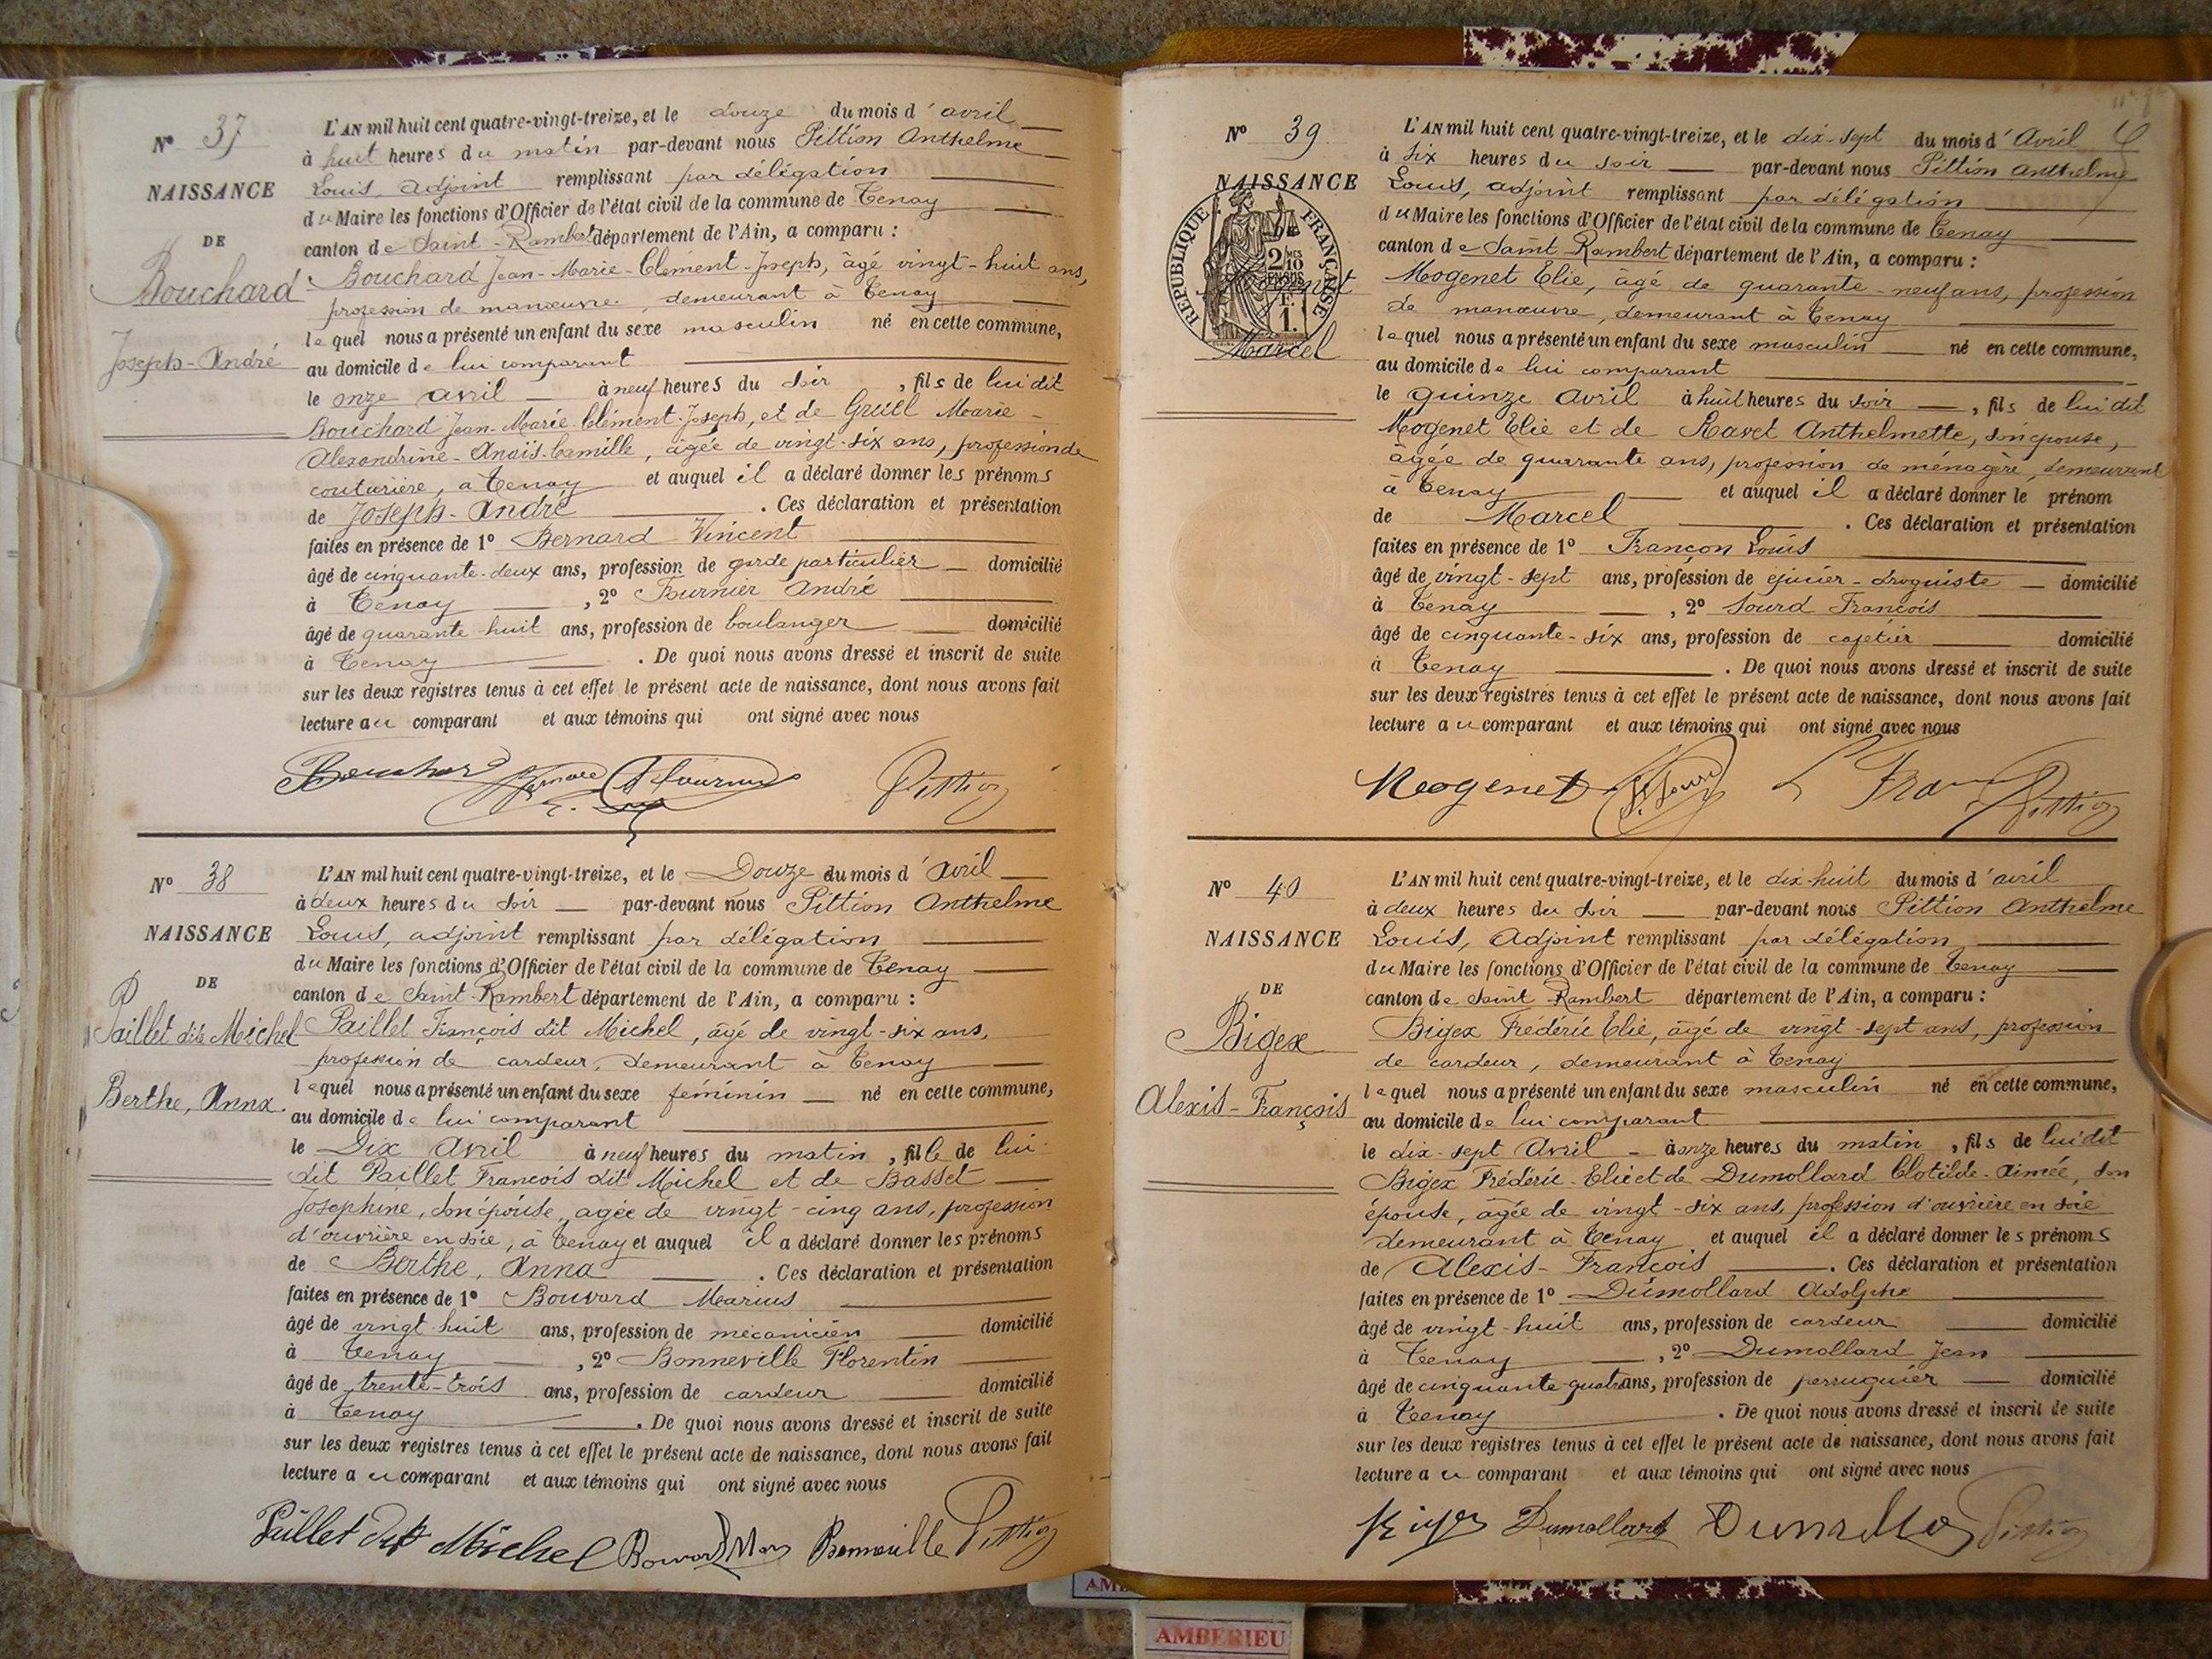 N° 37
NAISSANCE
DE
Bouchard
Joseph-André
L'AN mil huit cent quatre-vingt-treize, et le douze du mois d'avril
à huit heures du matin par-devant nous Pittion Anthelme
Louis, adjoint remplissant par délégation
du Maire les fonctions d'Officier de l'état civil de la commune de Tenay
canton de Saint-Rambert département de l'Ain, a comparu :
Bouchard Jean-Marie-Clément-Joseph, âgé vingt-huit ans,
profession de manœuvre, demeurant à Tenay
lequel nous a présenté un enfant du sexe masculin né en cette commune,
au domicile de lui comparant
le onze avril à neuf heures du soir, fils de lui dit
Bouchard Jean-Marie-Clément-Joseph, et de Gruel Marie-
Alexandrine-Anaïs-Camille, âgée de vingt-six ans, profession de
couturière, à Tenay et auquel il a déclaré donner les prénoms
de Joseph-André. Ces déclaration et présentation
faites en présence de 1° Bernard Vincent
âgé de cinquante-deux ans, profession de garde particulier domicilié
à Tenay, 2° Fournier André
âgé de quarante huit ans, profession de boulanger domicilié
à Tenay. De quoi nous avons dressé et inscrit de suite
sur les deux registres tenus à cet effet le présent acte de naissance, dont nous avons fait
lecture au comparant et aux témoins qui ont signé avec nous
Bouchard Fournier Pittion
N° 38
NAISSANCE
DE
Paillet dit Michel
Berthe, Anna
L'AN mil huit cent quatre-vingt-treize, et le Douze du mois d'avril
à deux heures du soir par-devant nous Pittion Anthelme
Louis, adjoint remplissant par délégation
du Maire les fonctions d'Officier de l'état civil de la commune de Tenay
canton de Saint-Rambert département de l'Ain, a comparu :
Paillet François dit Michel, âgé de vingt-six ans,
profession de cardeur, demeurant à Tenay
lequel nous a présenté un enfant du sexe féminin né en cette commune,
au domicile de lui comparant
le Dix Avril à neuf heures du matin, fille de lui
dit Paillet François dit Michel et de Basset
Joséphine, son épouse, âgée de vingt-cinq ans, profession
d'ouvrière en soie, à Tenay et auquel il a déclaré donner les prénoms
de Berthe, Anna. Ces déclaration et présentation
faites en présence de 1° Bouvard Marius
âgé de vingt huit ans, profession de mécanicien domicilié
à Tenay, 2° Bonneville Florentin
âgé de trente-trois ans, profession de cardeur domicilié
à Tenay. De quoi nous avons dressé et inscrit de suite
sur les deux registres tenus à cet effet le présent acte de naissance, dont nous avons fait
lecture au comparant et aux témoins qui ont signé avec nous
Paillet dit Michel Bonneville Pittion
N° 39
NAISSANCE
DE
Mogenet
Marcel
REPUBLIQUE FRANÇAISE
2/10 EN SUS
1 F.
L'AN mil huit cent quatre-vingt-treize, et le dix-sept du mois d'Avril
à six heures du soir par-devant nous Pittion Anthelme
Louis, adjoint remplissant par délégation
du Maire les fonctions d'Officier de l'état civil de la commune de Tenay
canton de Saint-Rambert département de l'Ain, a comparu :
Mogenet Elie, âgé de quarante-neuf ans, profession
de manœuvre, demeurant à Tenay
lequel nous a présenté un enfant du sexe masculin né en cette commune,
au domicile de lui comparant
le quinze Avril à huit heures du soir, fils de lui dit
Mogenet Elie et de Ravet Anthelmette, son épouse,
âgée de quarante ans, profession de ménagère, demeurant
à Tenay et auquel il a déclaré donner le prénom
de Marcel. Ces déclaration et présentation
faites en présence de 1° Françon Louis
âgé de vingt-sept ans, profession de épicier-droguiste domicilié
à Tenay, 2° Sourd François
âgé de cinquante-six ans, profession de cafetier domicilié
à Tenay. De quoi nous avons dressé et inscrit de suite
sur les deux registres tenus à cet effet le présent acte de naissance, dont nous avons fait
lecture au comparant et aux témoins qui ont signé avec nous
Mogenet Pittion
N° 40
NAISSANCE
DE
Bigex
Alexis-François
L'AN mil huit cent quatre-vingt-treize, et le dix-huit du mois d'avril
à deux heures du soir par-devant nous Pittion Anthelme
Louis, Adjoint remplissant par délégation
du Maire les fonctions d'Officier de l'état civil de la commune de Tenay
canton de Saint-Rambert département de l'Ain, a comparu :
Bigex Frédéric Elie, âgé de vingt-sept ans, profession
de cardeur, demeurant à Tenay
lequel nous a présenté un enfant du sexe masculin né en cette commune,
au domicile de lui comparant
le dix-sept Avril à onze heures du matin, fils de lui dit
Bigex Frédéric-Elie et de Dumollard Clotilde-Aimée, son
épouse, âgée de vingt-six ans, profession d'ouvrière en soie
demeurant à Tenay et auquel il a déclaré donner les prénoms
de Alexis-François. Ces déclaration et présentation
faites en présence de 1° Dumollard Adolphe
âgé de vingt-huit ans, profession de cardeur domicilié
à Tenay, 2° Dumollard Jean
âgé de cinquante-quatre ans, profession de perruquier domicilié
à Tenay. De quoi nous avons dressé et inscrit de suite
sur les deux registres tenus à cet effet le présent acte de naissance, dont nous avons fait
lecture au comparant et aux témoins qui ont signé avec nous
Dumollard Pittion
AMBERIEU